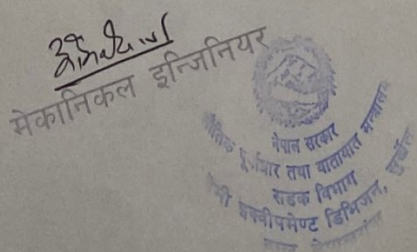 मेकानिकल इन्जिनियर
नेपाल सरकार
भौतिक पूर्वाधार तथा यातायात मन्त्रालय
सडक विभाग
हेभी इक्वीपमेण्ट डिभिजन,